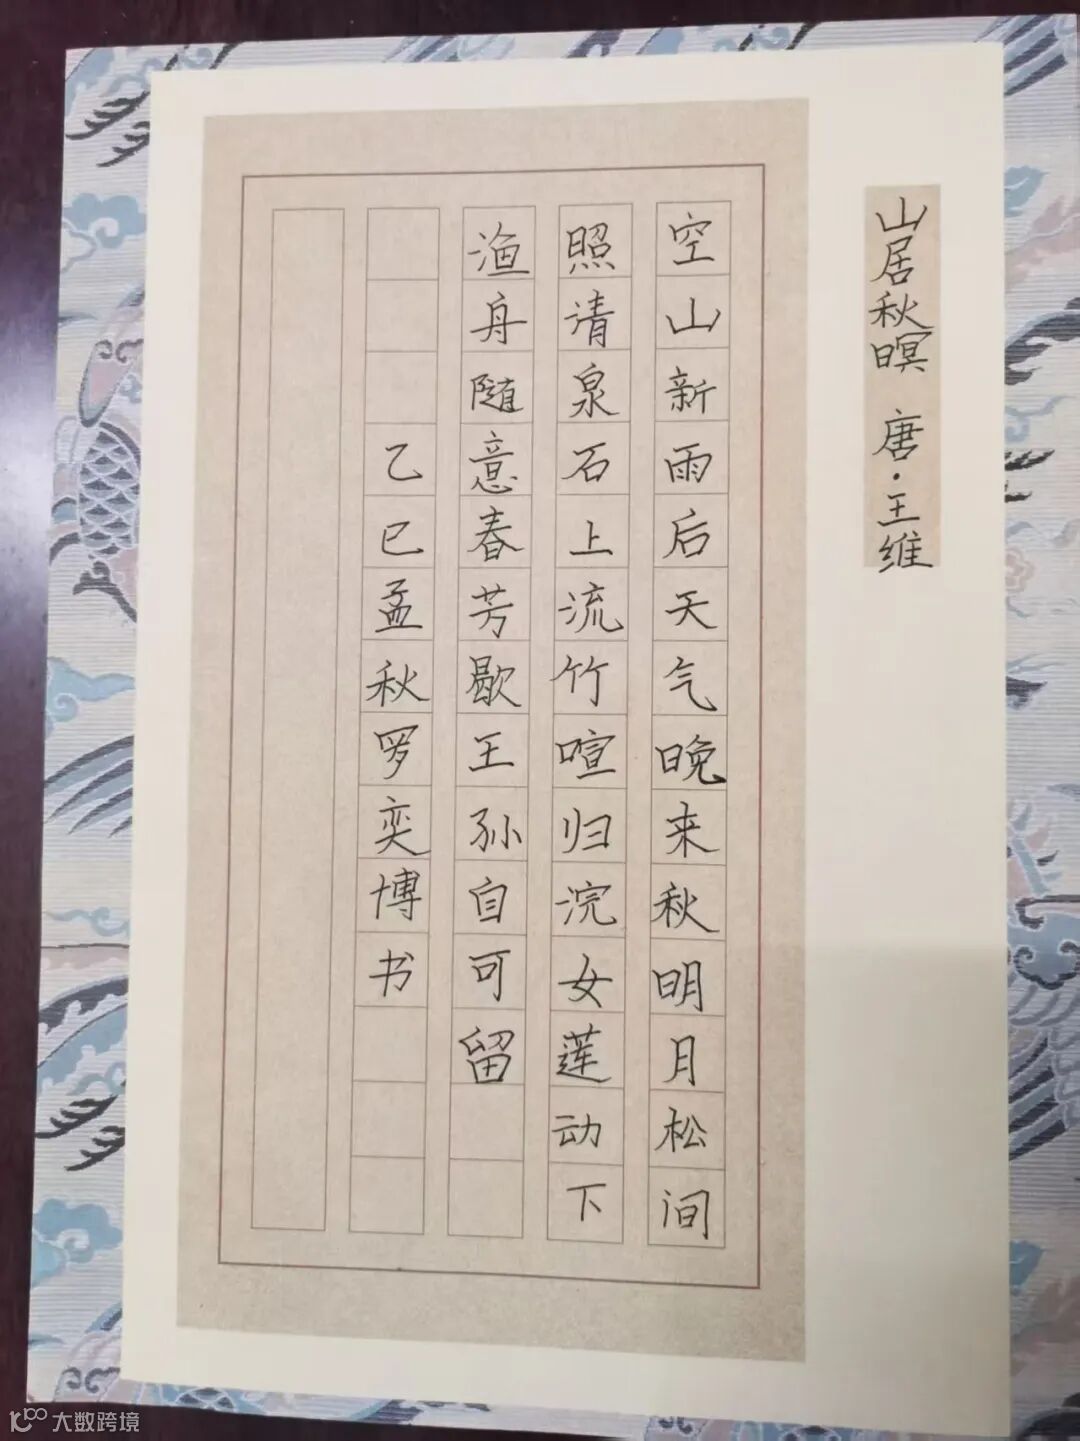 山居秋暝 唐·王维
空山新雨后天气晚来秋明月松间
照清泉石上流竹喧归浣女莲动下
渔舟随意春芳歇王孙自可留
乙巳孟秋罗奕博书
大数跨境